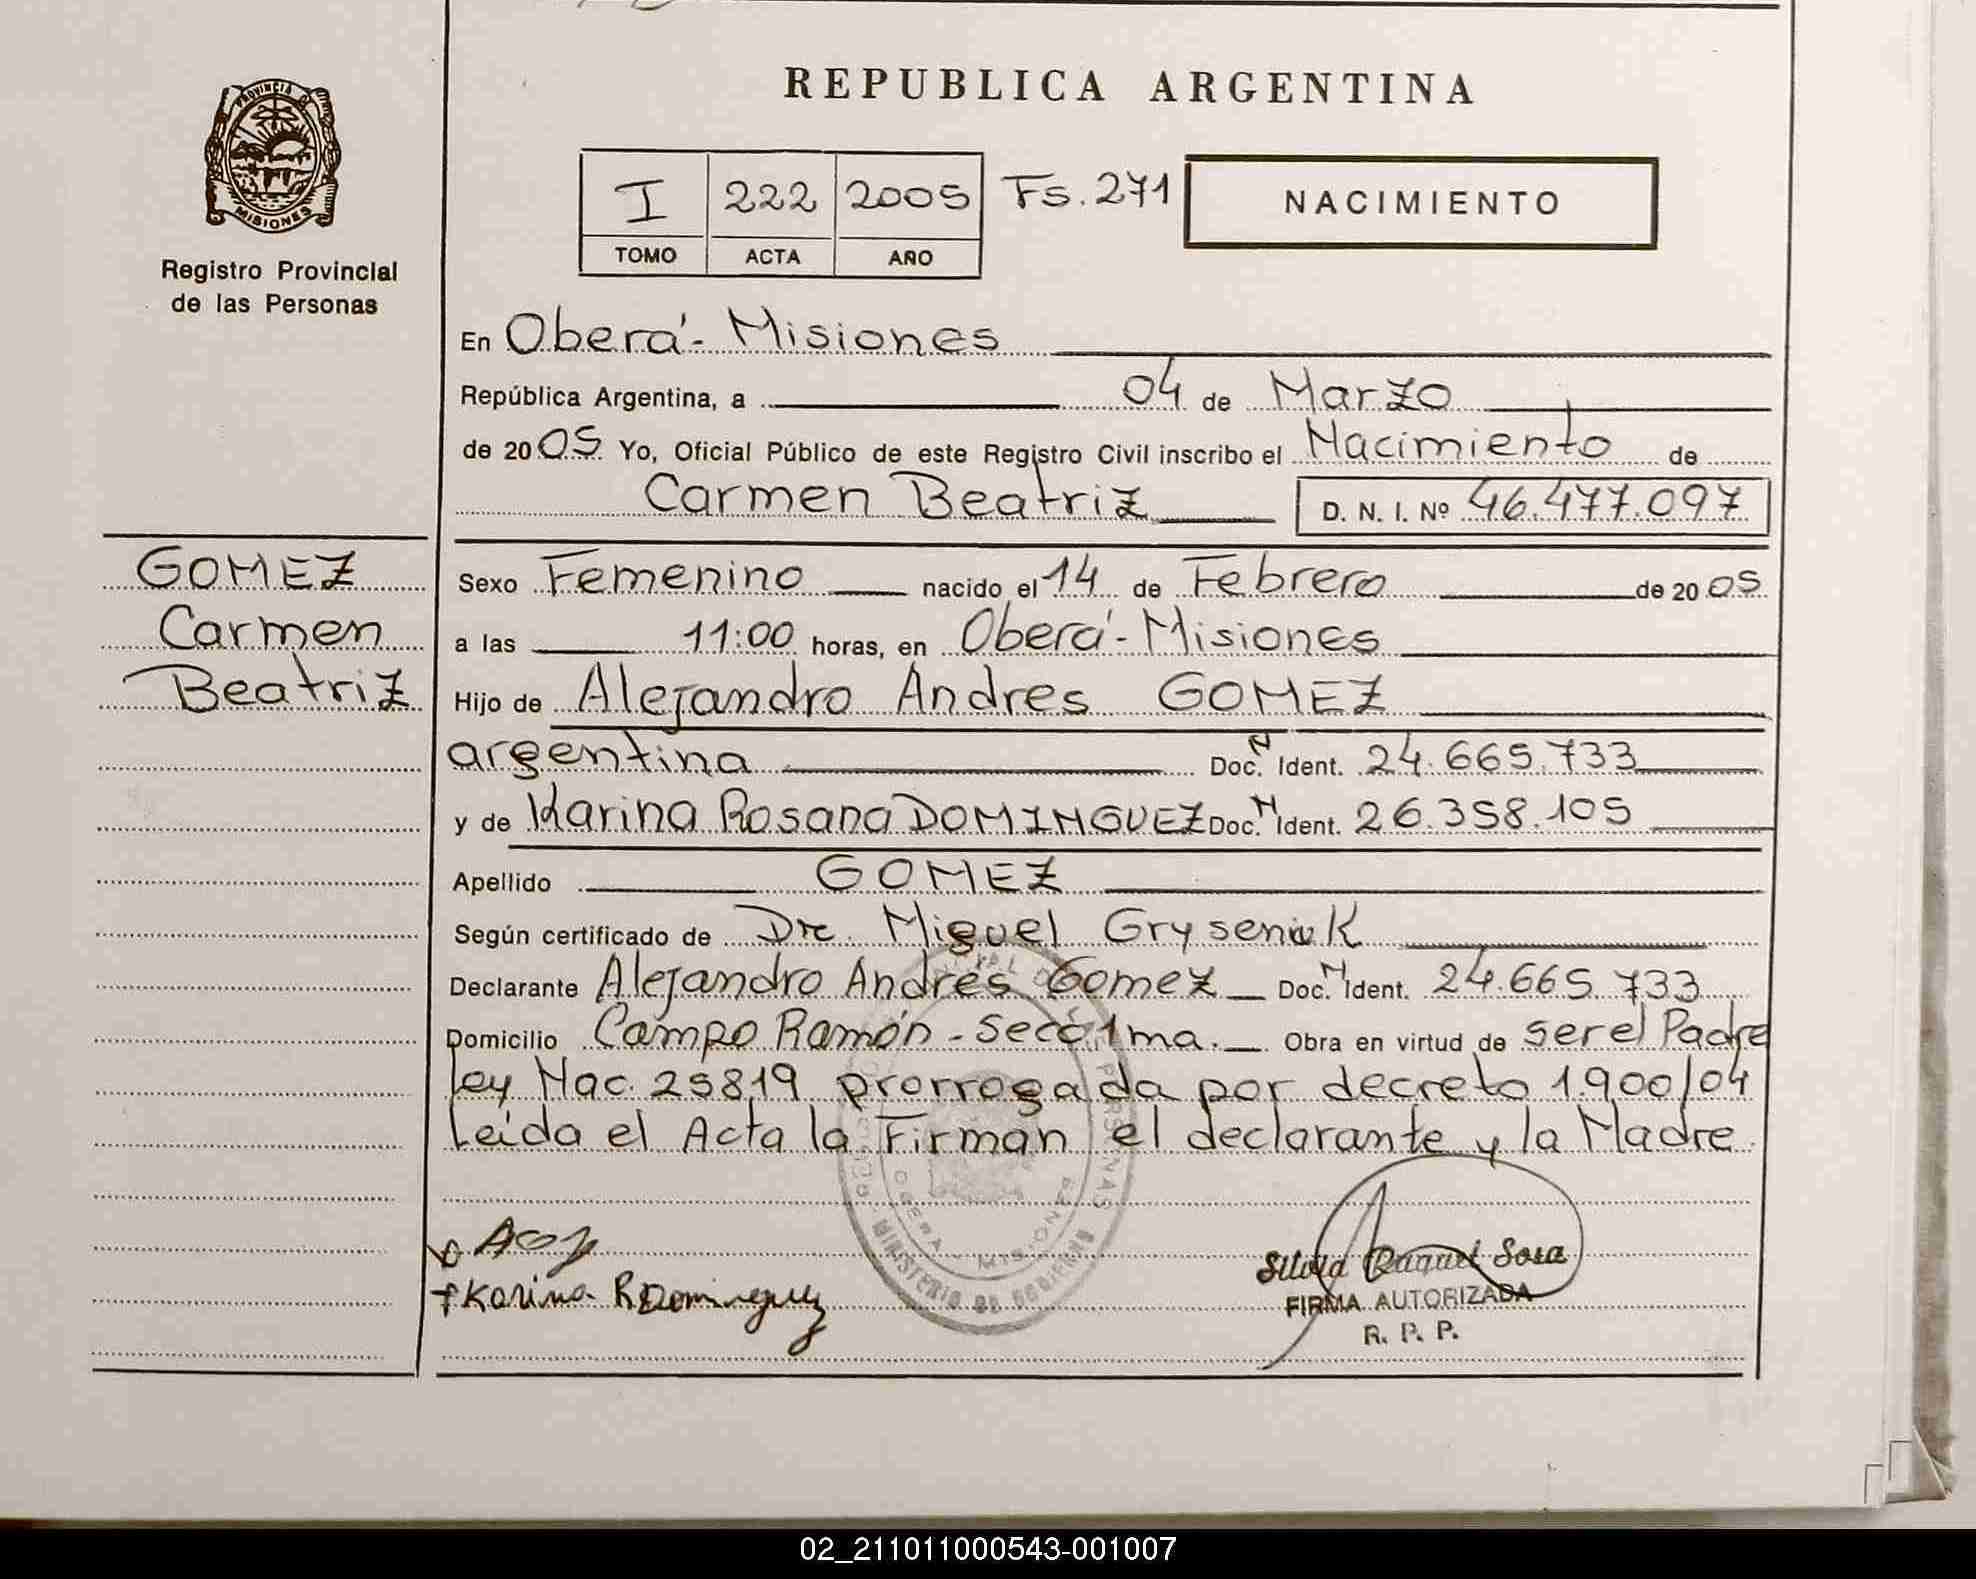 REPUBLICA ARGENTINA
PROVINCIA D
MISIONES
Registro Provincial
de las Personas
I 222 2005 Fs. 271
TOMO ACTA AÑO
NACIMIENTO
En Oberá - Misiones
República Argentina, a 04 de Marzo
de 2005 Yo, Oficial Público de este Registro Civil inscribo el Nacimiento de
Carmen Beatriz D. N. I. Nº 46.477.097
GOMEZ
Carmen
Beatriz
Sexo Femenino nacido el 14 de Febrero de 2005
a las 11:00 horas, en Oberá - Misiones
Hijo de Alejandro Andres GOMEZ
argentina Doc. N Ident. 24.665.733
y de Karina Rosana DOMINGUEZ Doc. N Ident. 26.358.105
Apellido GOMEZ
Según certificado de Dr. Miguel Gryseniuk
Declarante Alejandro Andrés Gomez Doc. N Ident. 24.665.733
Domicilio Campo Ramón - Secc 1ma. Obra en virtud de ser el Padre
ley Nac. 25819 prorrogada por decreto 1.900/04
Leida el Acta la Firman el declarante y la Madre
Karina R Dominguez
OBERA - MISIONES
MINISTERIO DE GOBIERNO
Silvia Raquel Sosa
FIRMA AUTORIZADA
R. P. P.
02_211011000543-001007